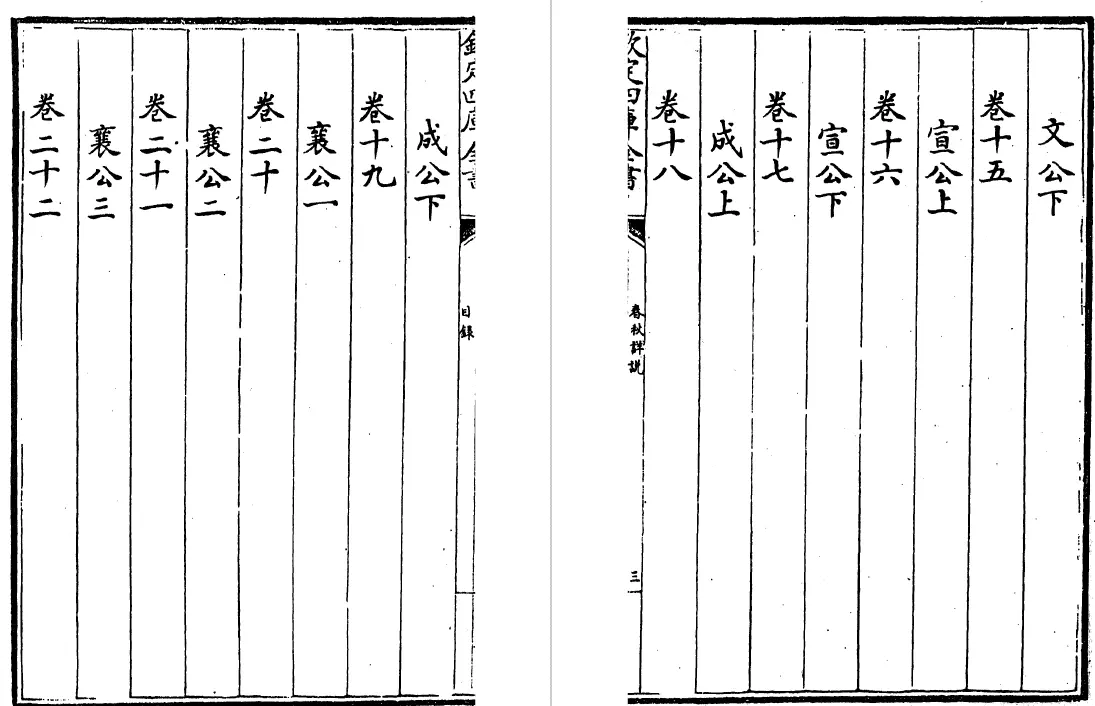 文公下
卷十五
宣公上
卷十六
宣公下
卷十七
成公上
卷十八
欽定四庫全書
春秋詳説
三
欽定四庫全書
目錄
成公下
卷十九
襄公一
卷二十
襄公二
卷二十一
襄公三
卷二十二